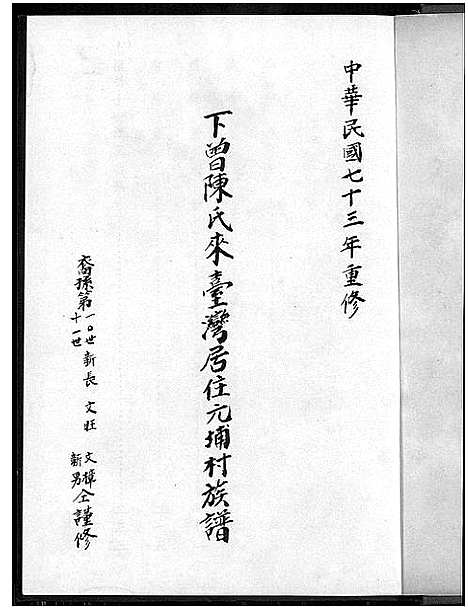 中華民國七十三年重修
下曾陳氏來臺灣居住元埔村族譜
裔孫第一0世 十一世 新長 文旺 文樟 新男 仝謹修